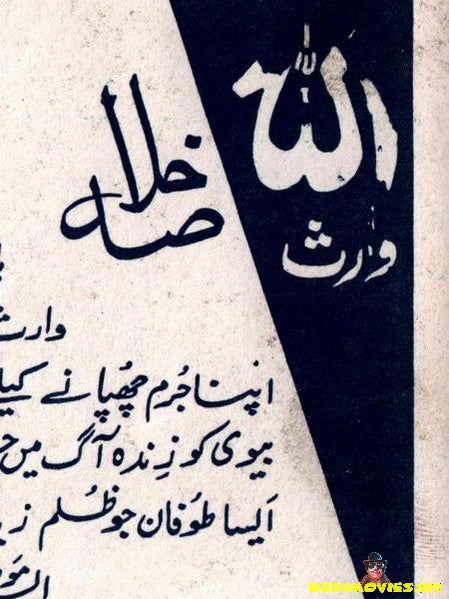 اللہ
وارث
خلاصہ
وارث
اپنا جُرم چھُپانے کیل
بیوی کو زِندہ آگ میں
اَیسا طوُفان جو ظُلم
DESIMOVIES.BIZ